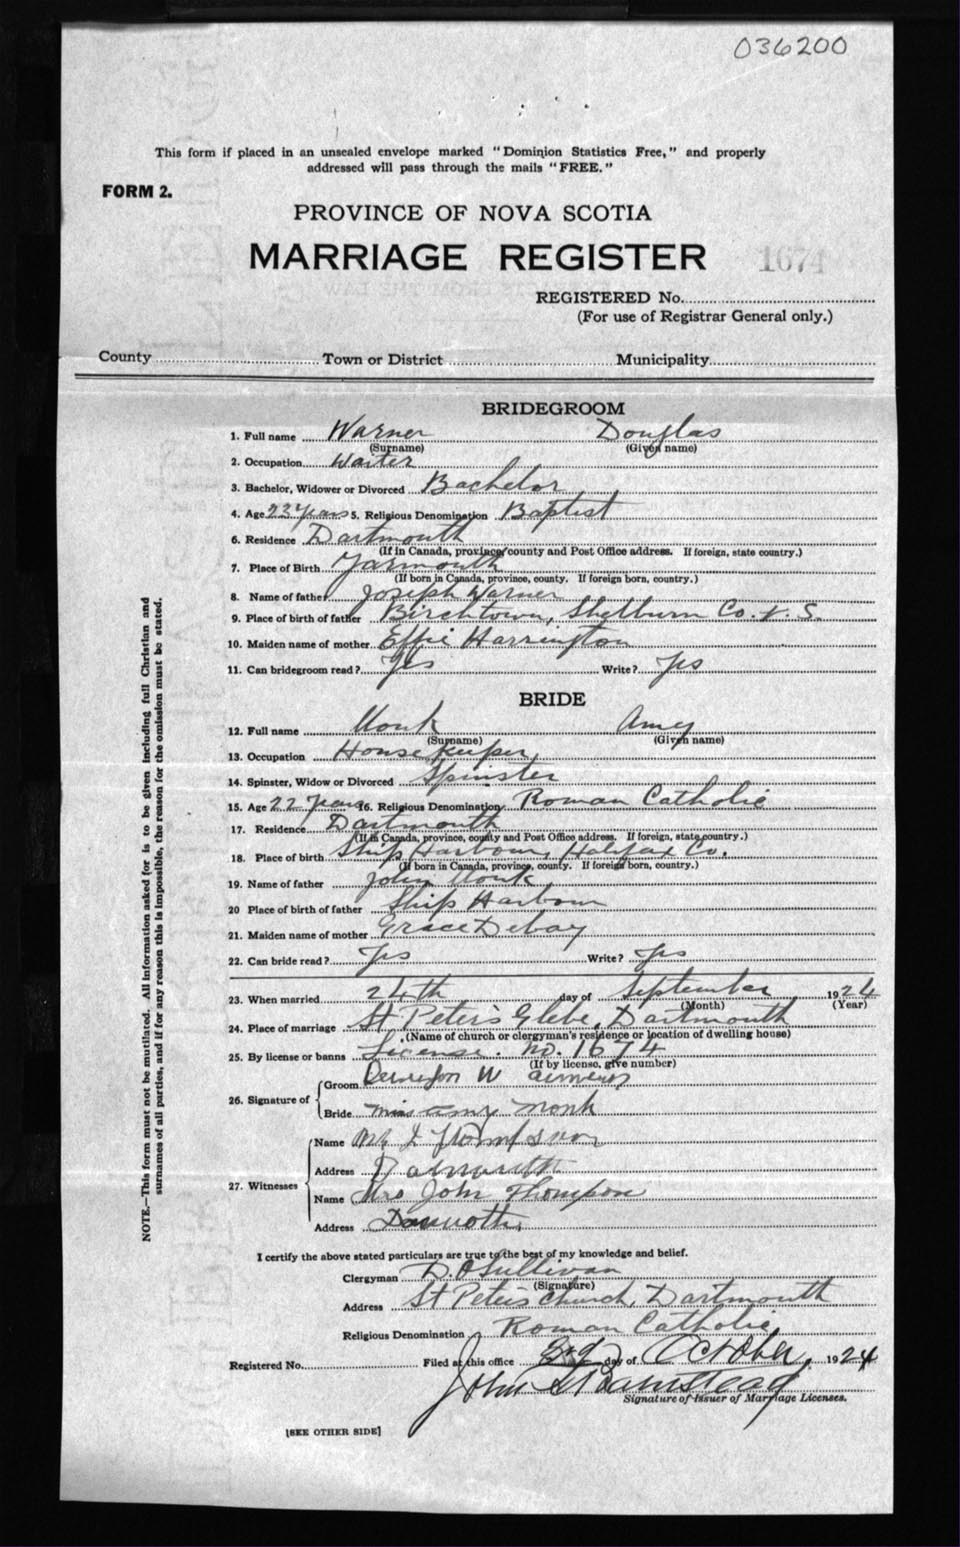 036200
This form if placed in an unsealed envelope marked "Dominion Statistics Free," and properly
addressed will pass through the mails "FREE."
FORM 2.
PROVINCE OF NOVA SCOTIA
MARRIAGE REGISTER 1674
REGISTERED No.
(For use of Registrar General only.)
County Town or District Municipality
BRIDEGROOM
1. Full name Warner Douglas
(Surname) (Given name)
2. Occupation Waiter
3. Bachelor, Widower or Divorced Bachelor
4. Age 23 Years 5. Religious Denomination Baptist
6. Residence Dartmouth
(If in Canada, province, county and Post Office address. If foreign, state country.)
7. Place of Birth Yarmouth
(If born in Canada, province, county. If foreign born, country.)
8. Name of father Joseph Warner
9. Place of birth of father Birchtown, Shelburn Co. N. S.
10. Maiden name of mother Effie Harrington
11. Can bridegroom read? Yes Write? Yes
BRIDE
12. Full name Monk Amy
(Surname) (Given name)
13. Occupation House keeper
14. Spinster, Widow or Divorced Spinster
15. Age 22 Years 16. Religious Denomination Roman Catholic
17. Residence Dartmouth
(If in Canada, province, county and Post Office address. If foreign, state country.)
18. Place of birth Ship Harbour, Halifax Co.
(If born in Canada, province, county. If foreign born, country.)
19. Name of father John Monk
20 Place of birth of father Ship Harbour
21. Maiden name of mother Grace Debay
22. Can bride read? Yes Write? Yes
23. When married 24th day of September 1924
(Month) (Year)
24. Place of marriage St Peter's Glebe, Dartmouth
(Name of church or clergyman's residence or location of dwelling house)
25. By license or banns License. no. 1674
(If by license, give number)
26. Signature of
Groom W
Bride miss amy monk
27. Witnesses
Name
Address
Name Mrs John Thompson
Address
I certify the above stated particulars are true to the best of my knowledge and belief.
Clergyman D. O'Sullivan
(Signature)
Address St Peter's Church, Dartmouth
Religious Denomination Roman Catholic
Registered No. Filed at this office day of October 1924
John
Signature of Issuer of Marriage Licenses.
[SEE OTHER SIDE]
NOTE.—This form must not be mutilated. All information asked for is to be given including full Christian and
surnames of all parties, and if for any reason this is impossible, the reason for the omission must be stated.